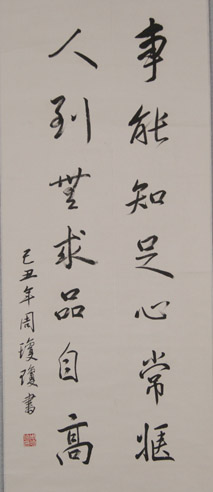 事能知足心常惬
人到無求品自高
己丑年周瓊瓊書